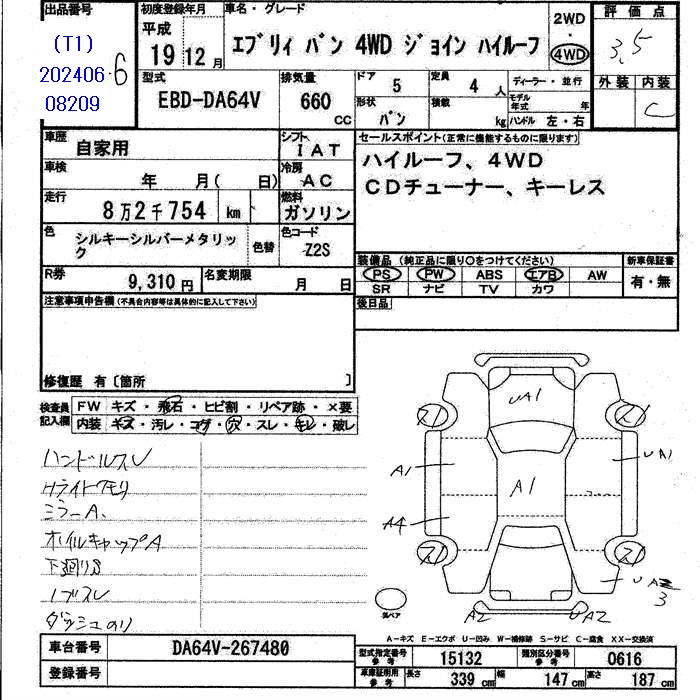 出品番号
(T1)
202406-6
08209
初度登録年月
平成
19 12 月
車名・グレード
エブリィ バン 4WD ジョイン ハイルーフ
2WD
・
4WD
評価点
3.5
外装 内装
C
型式
EBD-DA64V
排気量
660
CC
ドア
5
定員
4 人
ディーラー・並行
形状
バン
積載
kg
モデル年式 年
ハンドル 左・右
車歴
自家用
シフト
IAT
車検
年 月( 日)
冷房
AC
走行
8万2千754 km
燃料
ガソリン
色
シルキーシルバーメタリック
色替
色コード
Z2S
R券
9,310 円
名変期限
月 日
セールスポイント(正常に機能するものに限ります)
ハイルーフ、4WD
CDチューナー、キーレス
装備品 (純正品に限り○をつけてください)
新車保証書
PS PW ABS エアB AW
SR ナビ TV カワ
有・無
後日品
注意事項申告欄(不具合内容等は具体的に記入して下さい)
修復歴 有〔箇所 〕
検査員記入欄
FW キズ・飛石・ヒビ割・リペア跡・×要
内装 キズ・汚レ・コゲ・穴・スレ・キレ・破レ
ハンドルスレ
Hライトクモリ
ミラーA、
ホイルキャップA
下廻りS
ノブスレ
ダッシュのり
UA1
スリ
スリ
A1
UA1
A1
A4
スリ
スリ
UA2
3
A2
UA2
スペア
A-キズ E-エクボ U-凹み W-補修跡 S-サビ C-腐食 XX-交換済
車台番号
DA64V-267480
登録番号
型式指定番号 参考
15132
類別区分番号 参考
0616
車庫証明用 参考
長さ 339 cm
幅 147 cm
高さ 187 cm